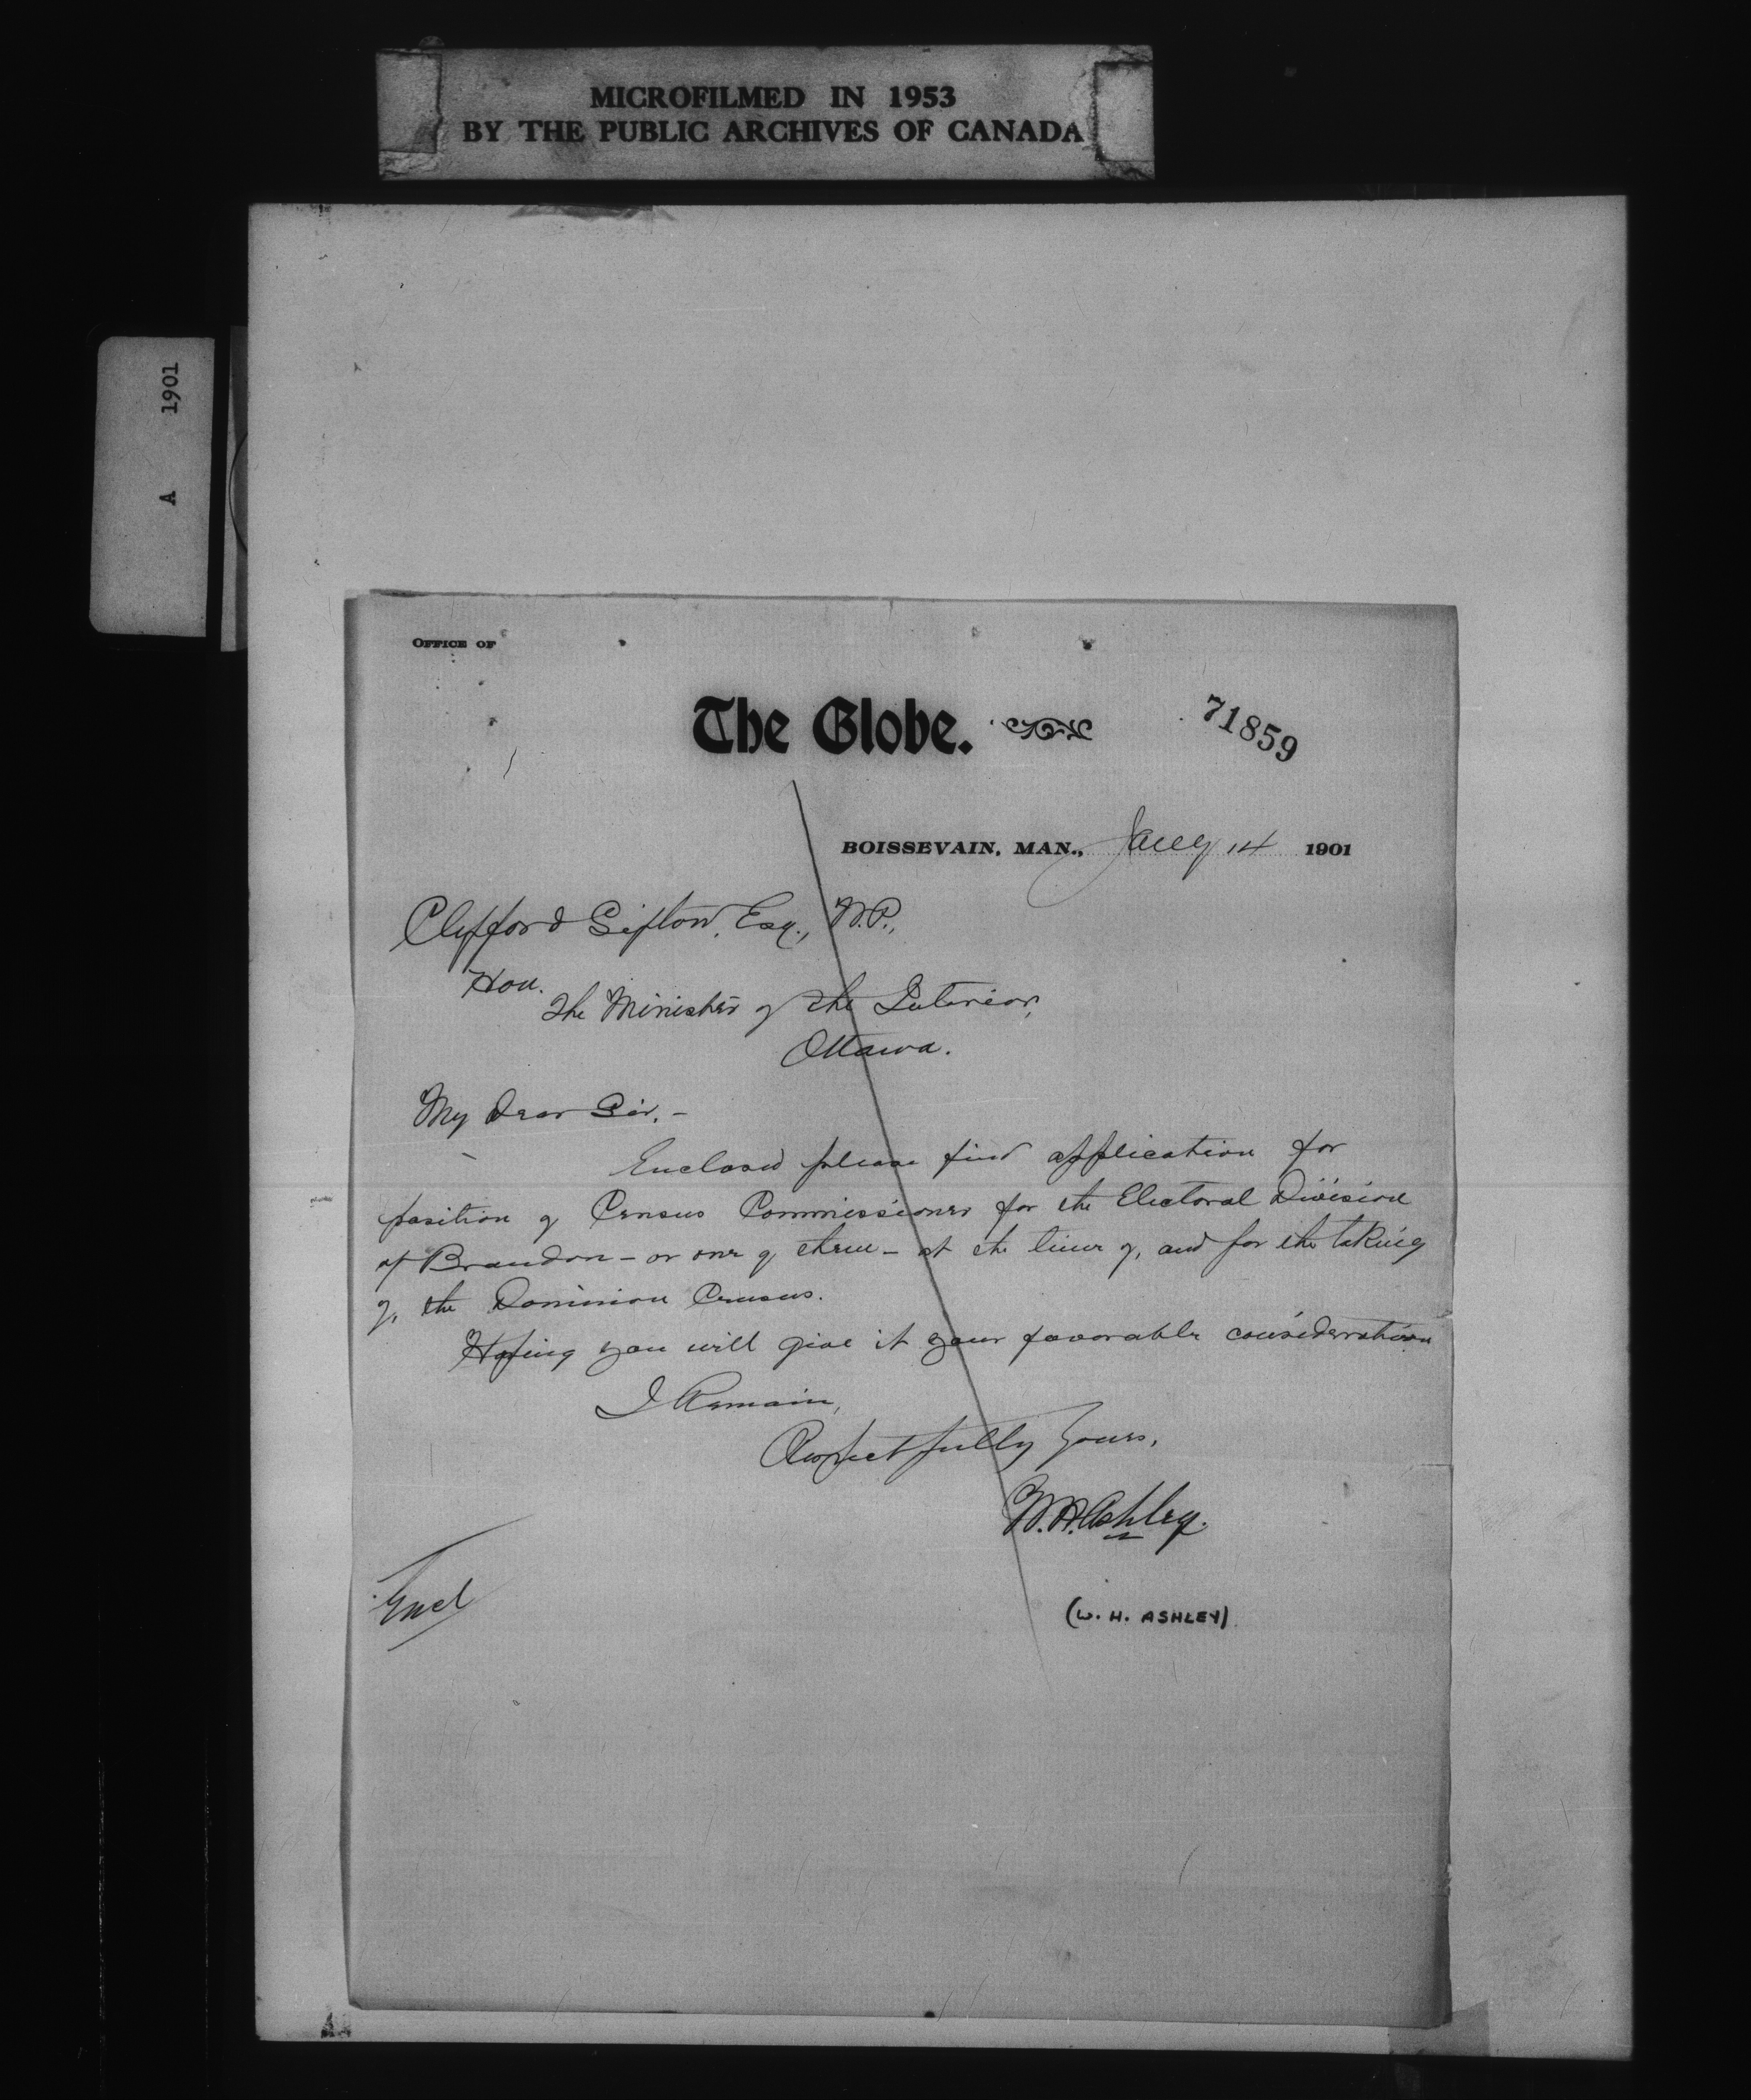 MICROFILMED IN 1953
BY THE PUBLIC ARCHIVES OF CANADA
A 1901
OFFICE OF
The Globe.
71859
BOISSEVAIN, MAN., Jany 14 1901
Clifford Sifton, Esq., M.P.,
Hon.
The Minister of the Interior,
Ottawa.
My Dear Sir, -
Enclosed please find application for
position of Census Commissioner for the Electoral Division
of Brandon - or one of them - at the time of, and for the taking
of, the Dominion Census.
Hoping you will give it your favorable consideration
I Remain,
Respectfully Yours,
W. H. Ashley.
Encl
(W. H. ASHLEY)